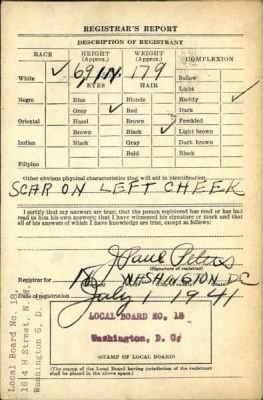 REGISTRAR'S REPORT
DESCRIPTION OF REGISTRANT
RACE HEIGHT (Approx.) WEIGHT (Approx.) COMPLEXION
White ✓ 69 IN. 179 Sallow
EYES HAIR Light
Negro Blue Blonde Ruddy ✓
Gray ✓ Red Dark
Oriental Hazel Brown Freckled
Brown Black ✓ Light brown
Indian Black Gray Dark brown
Bald Black
Filipino
Other obvious physical characteristics that will aid in identification
SCAR ON LEFT CHEEK
I certify that my answers are true; that the person registered has read or has had
read to him his own answers; that I have witnessed his signature or mark and that
all of his answers of which I have knowledge are true, except as follows:
J Paul Peters
(Signature of registrar)
Registrar for WASHINGTON DC
Date of registration July 1 1941
LOCAL BOARD NO. 15
Washington, D. C.
(STAMP OF LOCAL BOARD)
(The stamp of the Local Board having jurisdiction of the registrant
shall be placed in the above space.)
Local Board No. 15
H Street, N.
Washington